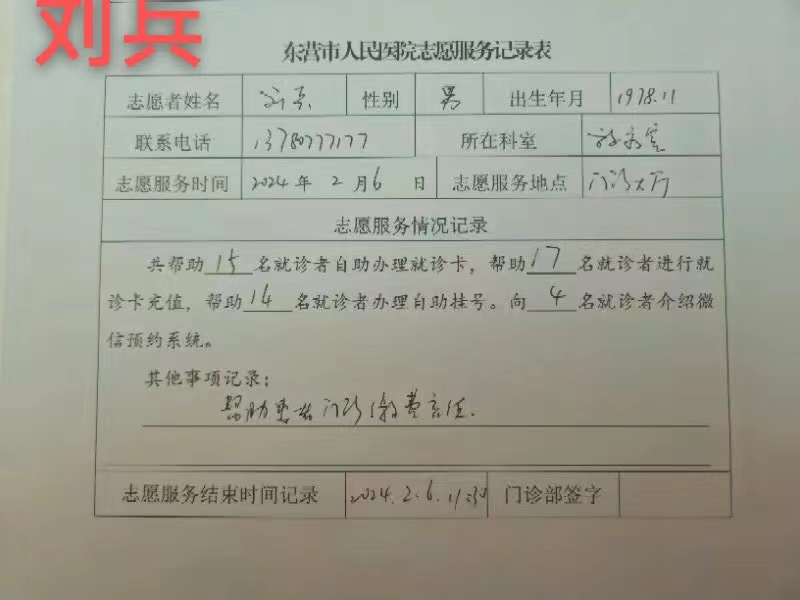 刘兵
东营市人民医院志愿服务记录表
志愿者姓名 刘兵 性别 男 出生年月 1978.11
联系电话 13780777177 所在科室
志愿服务时间 2024年 2月6日 志愿服务地点 门诊大厅
志愿服务情况记录
共帮助15名就诊者自助办理就诊卡，帮助17名就诊者进行就
诊卡充值，帮助14名就诊者办理自助挂号。向4名就诊者介绍微
信预约系统。
其他事项记录：
帮助患者门诊缴费
志愿服务结束时间记录 2024.2.6.11:30 门诊部签字